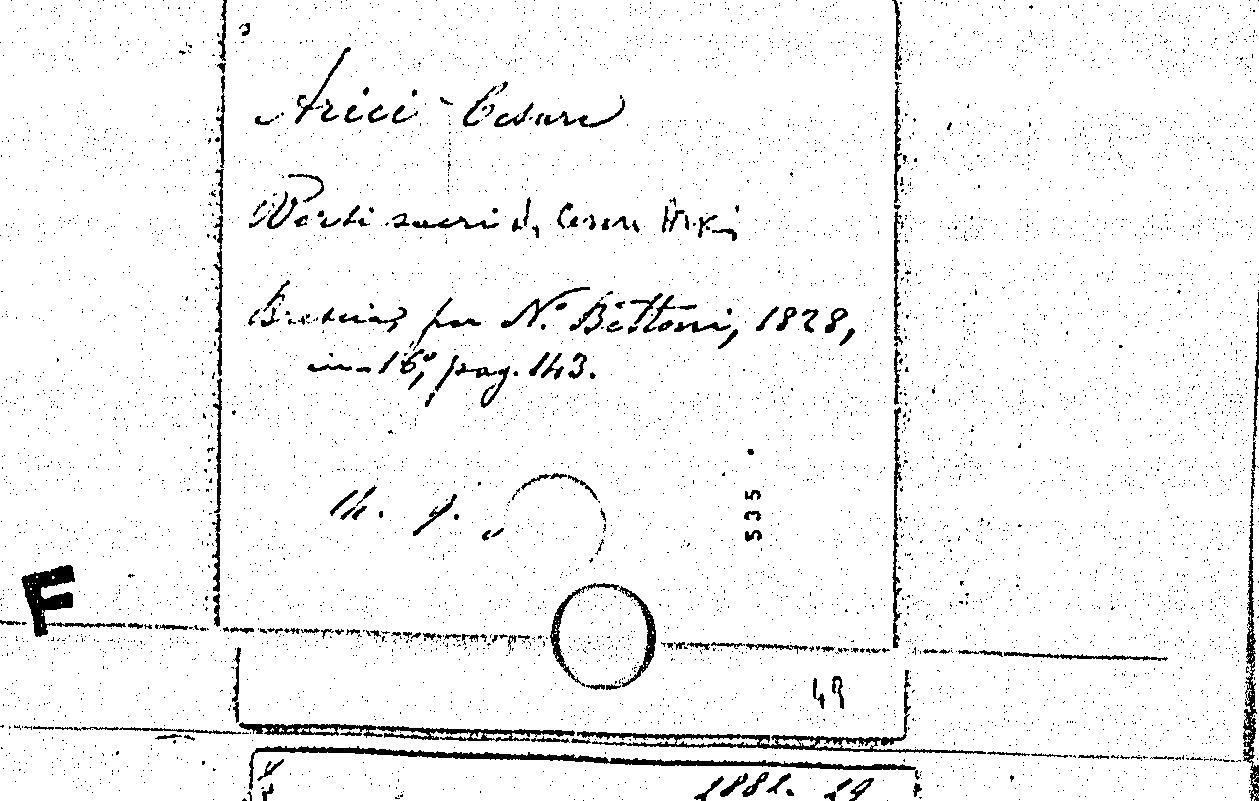 Arici - Cesare
Versi sacri di Cesare Arici
Brescia, per N.º Bettoni, 1828,
in-16º, pag. 143.
535
F
49
1882. 29